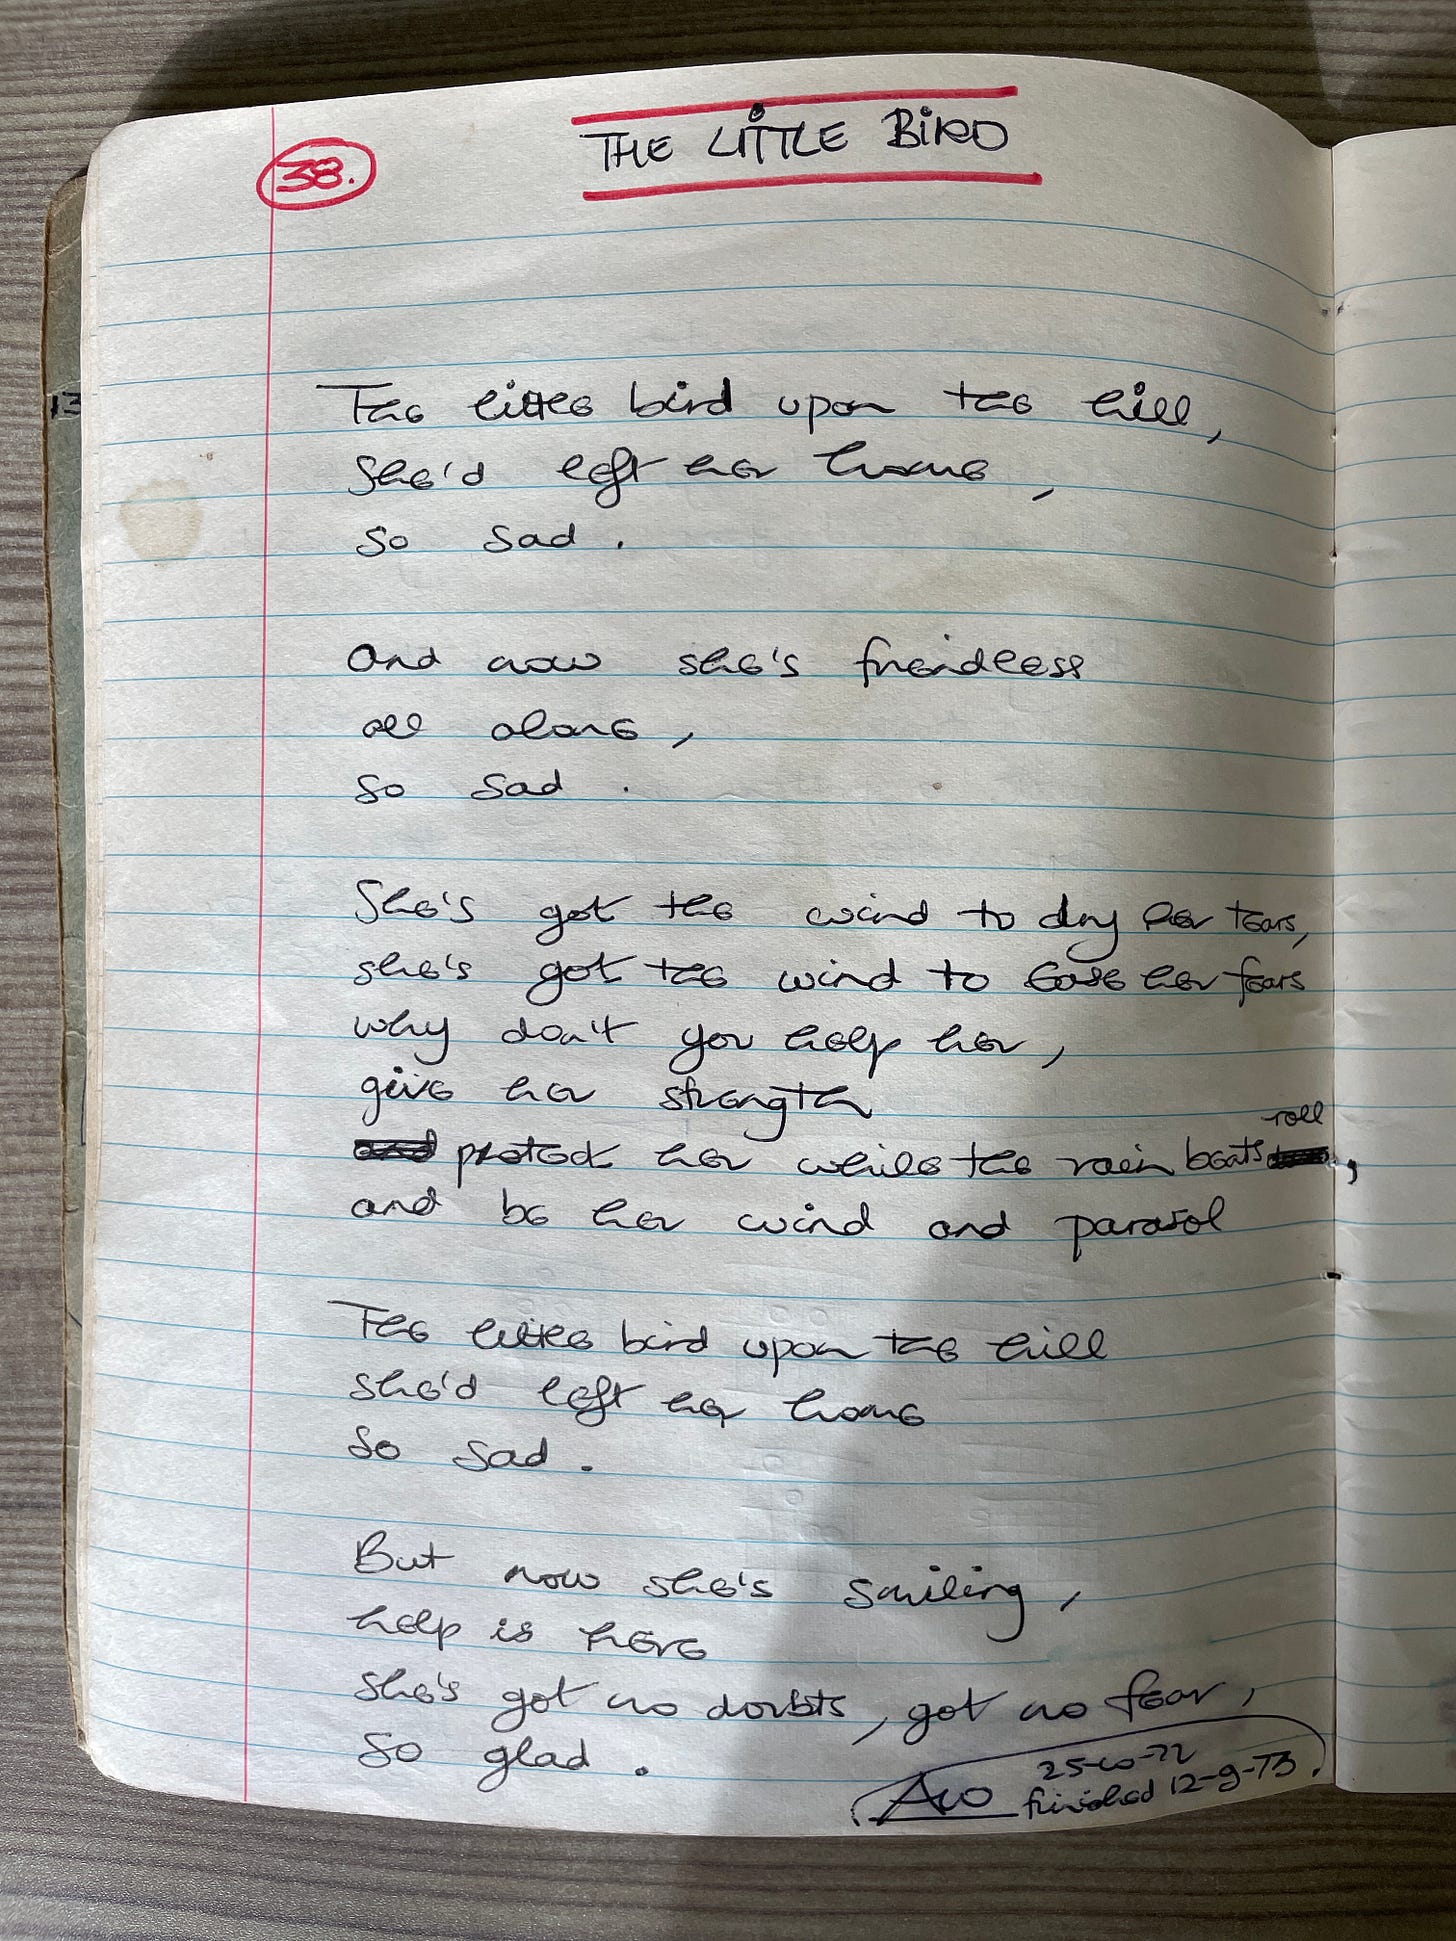 38.
THE LITTLE BIRD
13
The little bird upon the hill,
She'd left her home,
so sad.
And now she's freindless
all alone,
so sad.
She's got the wind to dry her tears,
she's got the wind to ease her fears
why don't you help her,
give her strength
roll
protect her while the rain beats,
and be her wind and parasol
The little bird upon the hill
she'd left her home
So sad.
But now she's smiling,
help is here
she's got no doubts, got no fear,
So glad.
25-10-72
finished 12-9-73.